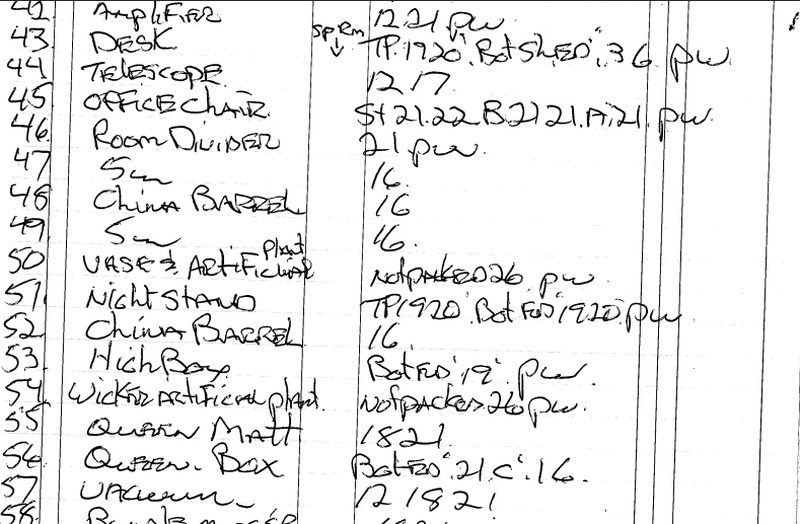 42 AMPLIFIER 12 21 pw
43 DESK SpRm ↓ TP.1920".BotSHED".36 pw.
44 TELESCOPE 12 17
45 OFFICE CHAIR St 21.22.B2121.A.21.pw.
46 ROOM DIVIDER 21 pw.
47 Sm 16.
48 CHINA BARREL 16
49 Sm 16.
50 VASE & ARTIFICIAL plant Notpacked 26 pw
51 NightSTAND TP1920" BotED"1920"pw
52 CHINA BARREL 16.
53 High Box BotED"19".pw.
54 WICKER ARTIFICIAL plant. Notpacked 26 pw.
55 QUEEN MATT 1821.
56 QUEEN. BOX BotED".21.C".16.
57 VACUUM 12 1821
58